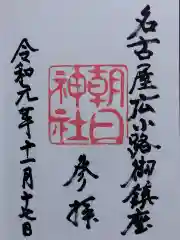 名古屋広小路御鎮座
朝日神社
参拝
令和元年十一月十七日